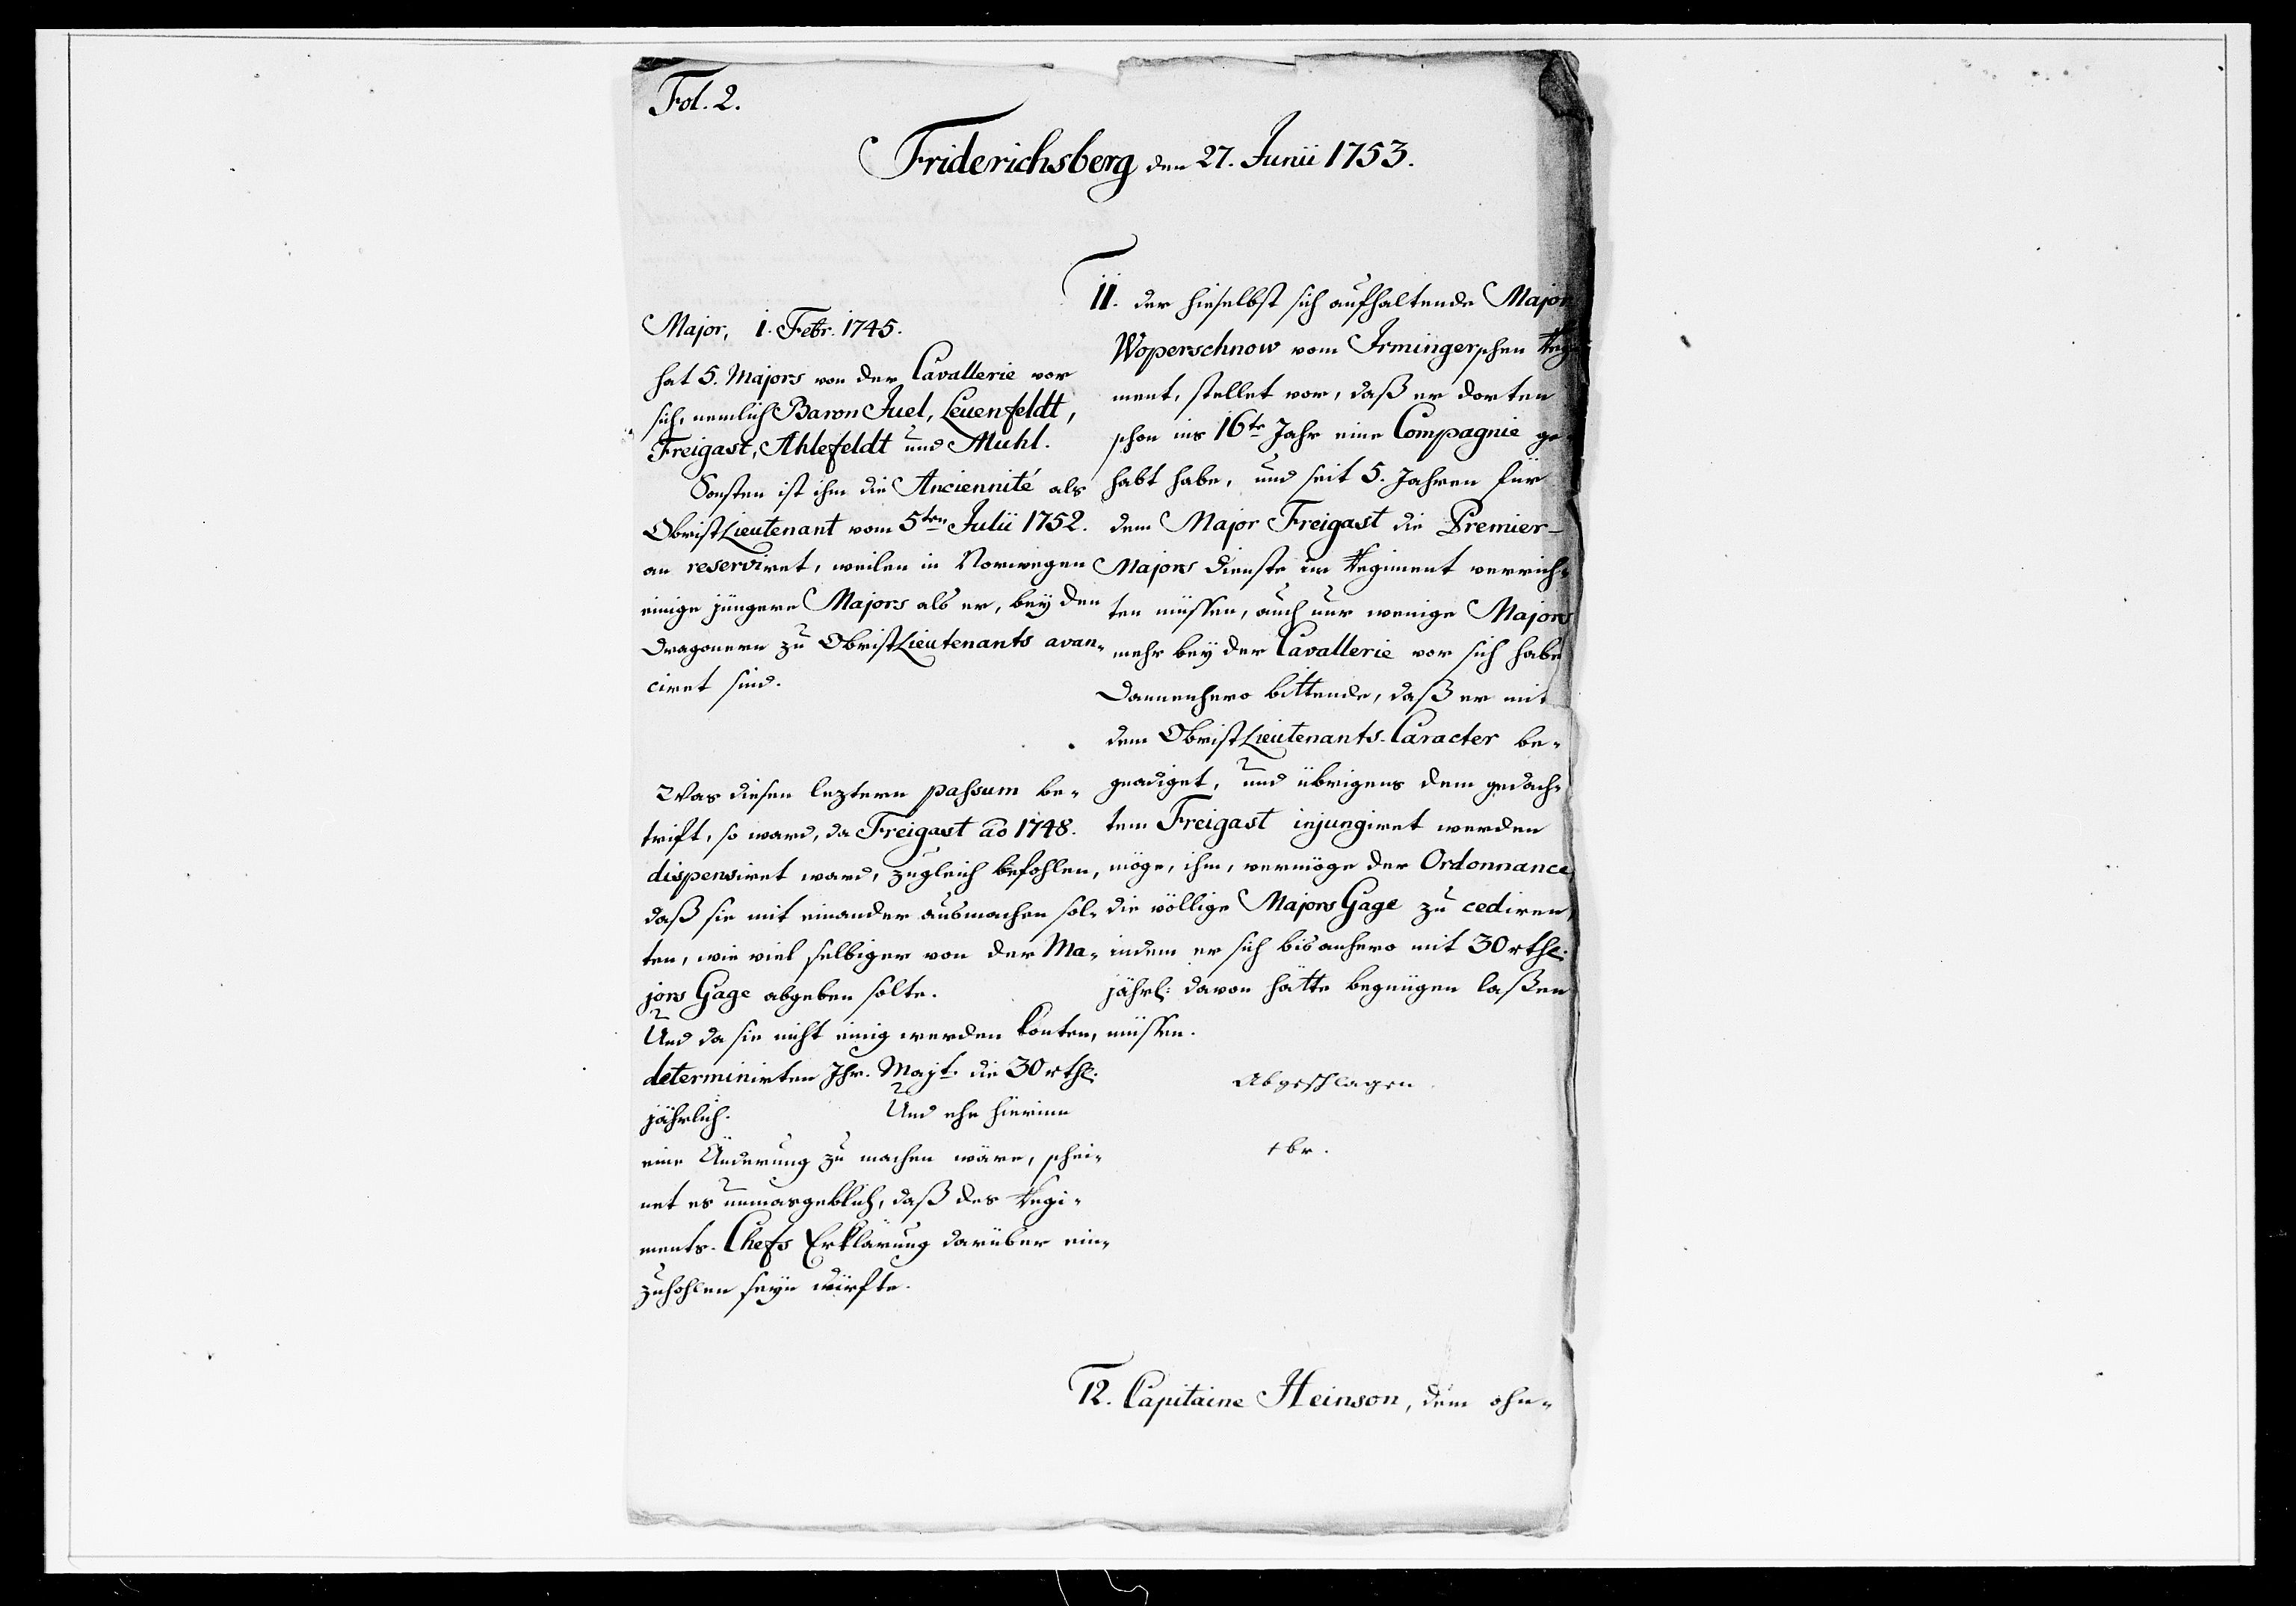 Fol. 2.
Friderichsberg den 27. Junii 1753.
Major, 1. Febr. 1745.
hat 5. Majors von der Cavallerie vor
sich, nemlich Baron Juel, Leuenfeldt,
Freigast, Ahlefeldt und Muhl.
Sonsten ist ihm die Anciennité als
ObristLieutenant vom 5ten Julii 1752.
an reserviret, weilen in Norwegen
einige jüngere Majors als er, bey den
Dragonern zu ObristLieutenants avan-
ciret sind.
Was diesen leztern passum be-
trift, so ward, da Freigast ao 1748.
dispensiret ward, zugleich befohlen,
daß sie mit einander ausmachen sol-
ten, wie viel selbiger von der Ma-
jors Gage abgeben solte.
Und da sie nicht einig werden konten,
determinirten Ihr. Majt. die 30 rthl:
jährlich. Und ehe hierinn
eine Änderung zu machen wäre, schei-
net es unmasgeblich, daß des Regi-
ments-Chefs Erklärung darüber ein-
zuhohlen seyn dürfte.
11. der hieselbst sich aufhaltende Major
Woperschnow vom Irmingerschen Regi-
ment, stellet vor, daß er dorten
schon ins 16te Jahr eine Compagnie ge-
habt habe, und seit 5. Jahren für
dem Major Freigast die Premier-
Majors Dienste im Regiment verrich-
ten müssen, auch nur wenige Majors
mehr bey der Cavallerie vor sich habe
Dannenhero bittende, daß er mit
dem ObristLieutenants-Caracter be-
gnadiget, und übrigens dem gedach-
tem Freigast injungiret werden
möge, ihm, vermöge der Ordonnance,
die völlige Majors Gage zu cediren,
indem er sich bis anhero mit 30 rthl:
jährl: davon hätte begnügen laßen
müssen.
Abgeschlagen
tbr.
12. Capitaine Heinson, dem ohn-